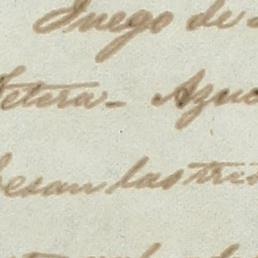 Juego de
tetera - Azuc
pesan las tres